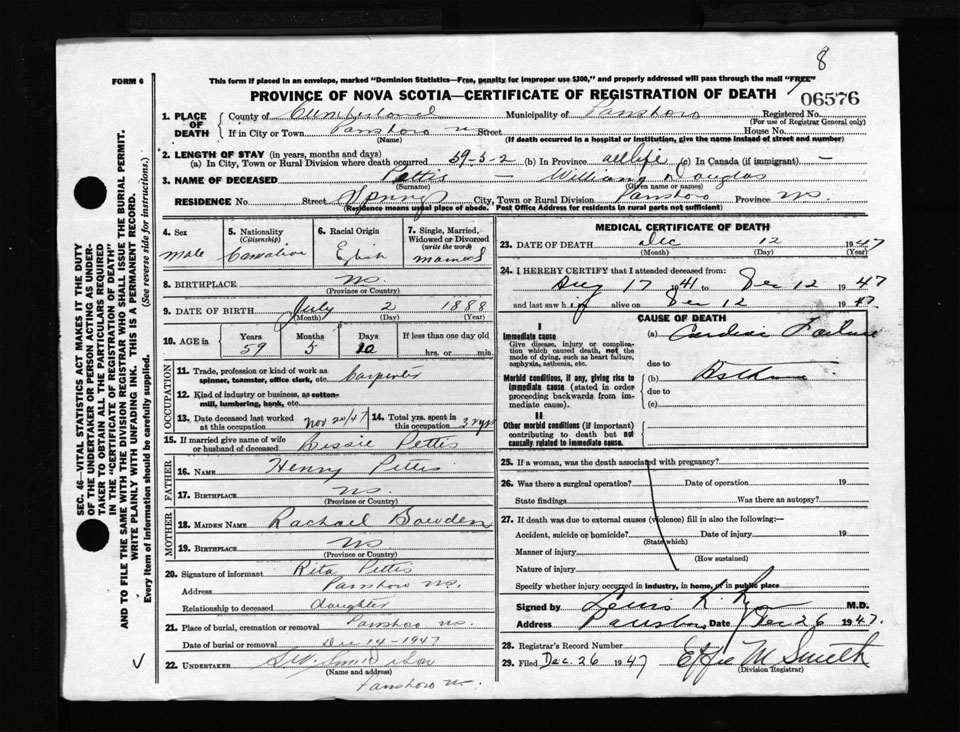 8
FORM 6
This form if placed in an envelope, marked "Dominion Statistics—Free, penalty for improper use $300," and properly addressed will pass through the mail "FREE"
PROVINCE OF NOVA SCOTIA—CERTIFICATE OF REGISTRATION OF DEATH
06576
1. PLACE OF DEATH
County of Cumberland Municipality of Parrsboro Registered No.
(For use of Registrar General only)
If in City or Town Parrsboro N.S. Street House No.
(Name) (If death occurred in a hospital or institution, give the name instead of street and number)
2. LENGTH OF STAY (in years, months and days)
(a) In City, Town or Rural Division where death occurred 59-5-2 (b) In Province all life (c) In Canada (if immigrant) —
3. NAME OF DECEASED Pettis — William Douglas
(Surname) (Given name or names)
RESIDENCE No. Street City, Town or Rural Division Parrsboro Province N.S.
(Residence means usual place of abode. Post Office Address for residents in rural parts not sufficient)
4. Sex
male
5. Nationality
(Citizenship)
Canadian
6. Racial Origin
7. Single, Married, Widowed or Divorced
(write the word)
married
8. BIRTHPLACE NS
(Province or Country)
9. DATE OF BIRTH July 2 1888
(Month) (Day) (Year)
10. AGE in Years Months Days If less than one day
59 5 10 hrs. or min.
OCCUPATION
11. Trade, profession or kind of work as spinner, teamster, office clerk, etc. Carpenter
12. Kind of industry or business, as cotton-mill, lumbering, bank, etc.
13. Date deceased last worked at this occupation Nov 20/47
14. Total yrs. spent in this occupation 3 yrs
15. If married give name of wife or husband of deceased Bessie Pettis
FATHER
16. NAME Henry Pettis
17. BIRTHPLACE NS.
(Province or Country)
MOTHER
18. MAIDEN NAME Rachael Bowden
19. BIRTHPLACE NS
(Province or Country)
20. Signature of informant Rita Pettis
Address Parrsboro NS.
Relationship to deceased daughter
21. Place of burial, cremation or removal Parrsboro NS.
Date of burial or removal Dec 14-1947
22. UNDERTAKER
(Name and address)
Parrsboro NS.
MEDICAL CERTIFICATE OF DEATH
23. DATE OF DEATH Dec 12 1947
(Month) (Day) (Year)
24. I HEREBY CERTIFY that I attended deceased from:
Aug 17 1941 to Dec 12 1947
and last saw him alive on Dec 12 1947
CAUSE OF DEATH
I
Immediate cause
Give disease, injury or complication which caused death, not the mode of dying, such as heart failure, asphyxia, asthenia, etc.
(a) Cardiac Failure
due to
Morbid conditions, if any, giving rise to immediate cause (stated in order proceeding backwards from immediate cause).
(b) Asthma
due to
(c)
II
Other morbid conditions (if important) contributing to death but not causally related to immediate cause.
25. If a woman, was the death associated with pregnancy?
26. Was there a surgical operation? Date of operation 19
State findings Was there an autopsy?
27. If death was due to external causes (violence) fill in also the following:—
Accident, suicide or homicide? Date of injury 19
(State which)
Manner of injury
(How sustained)
Nature of injury
Specify whether injury occurred in industry, in home, or in public place
Signed by M.D.
Address Parrsboro Date Dec 26 1947.
28. Registrar's Record Number
29. Filed Dec. 26 1947 Effie M. Smith
(Division Registrar)
SEC. 46—VITAL STATISTICS ACT MAKES IT THE DUTY
OF THE UNDERTAKER OR PERSON ACTING AS UNDER-
TAKER TO OBTAIN ALL THE PARTICULARS REQUIRED
IN THE "CERTIFICATE OF REGISTRATION OF DEATH"
AND TO FILE THE SAME WITH THE DIVISION REGISTRAR WHO SHALL ISSUE THE BURIAL PERMIT.
WRITE PLAINLY WITH UNFADING INK. THIS IS A PERMANENT RECORD.
Every item of information should be carefully supplied. (See reverse side for instructions.)